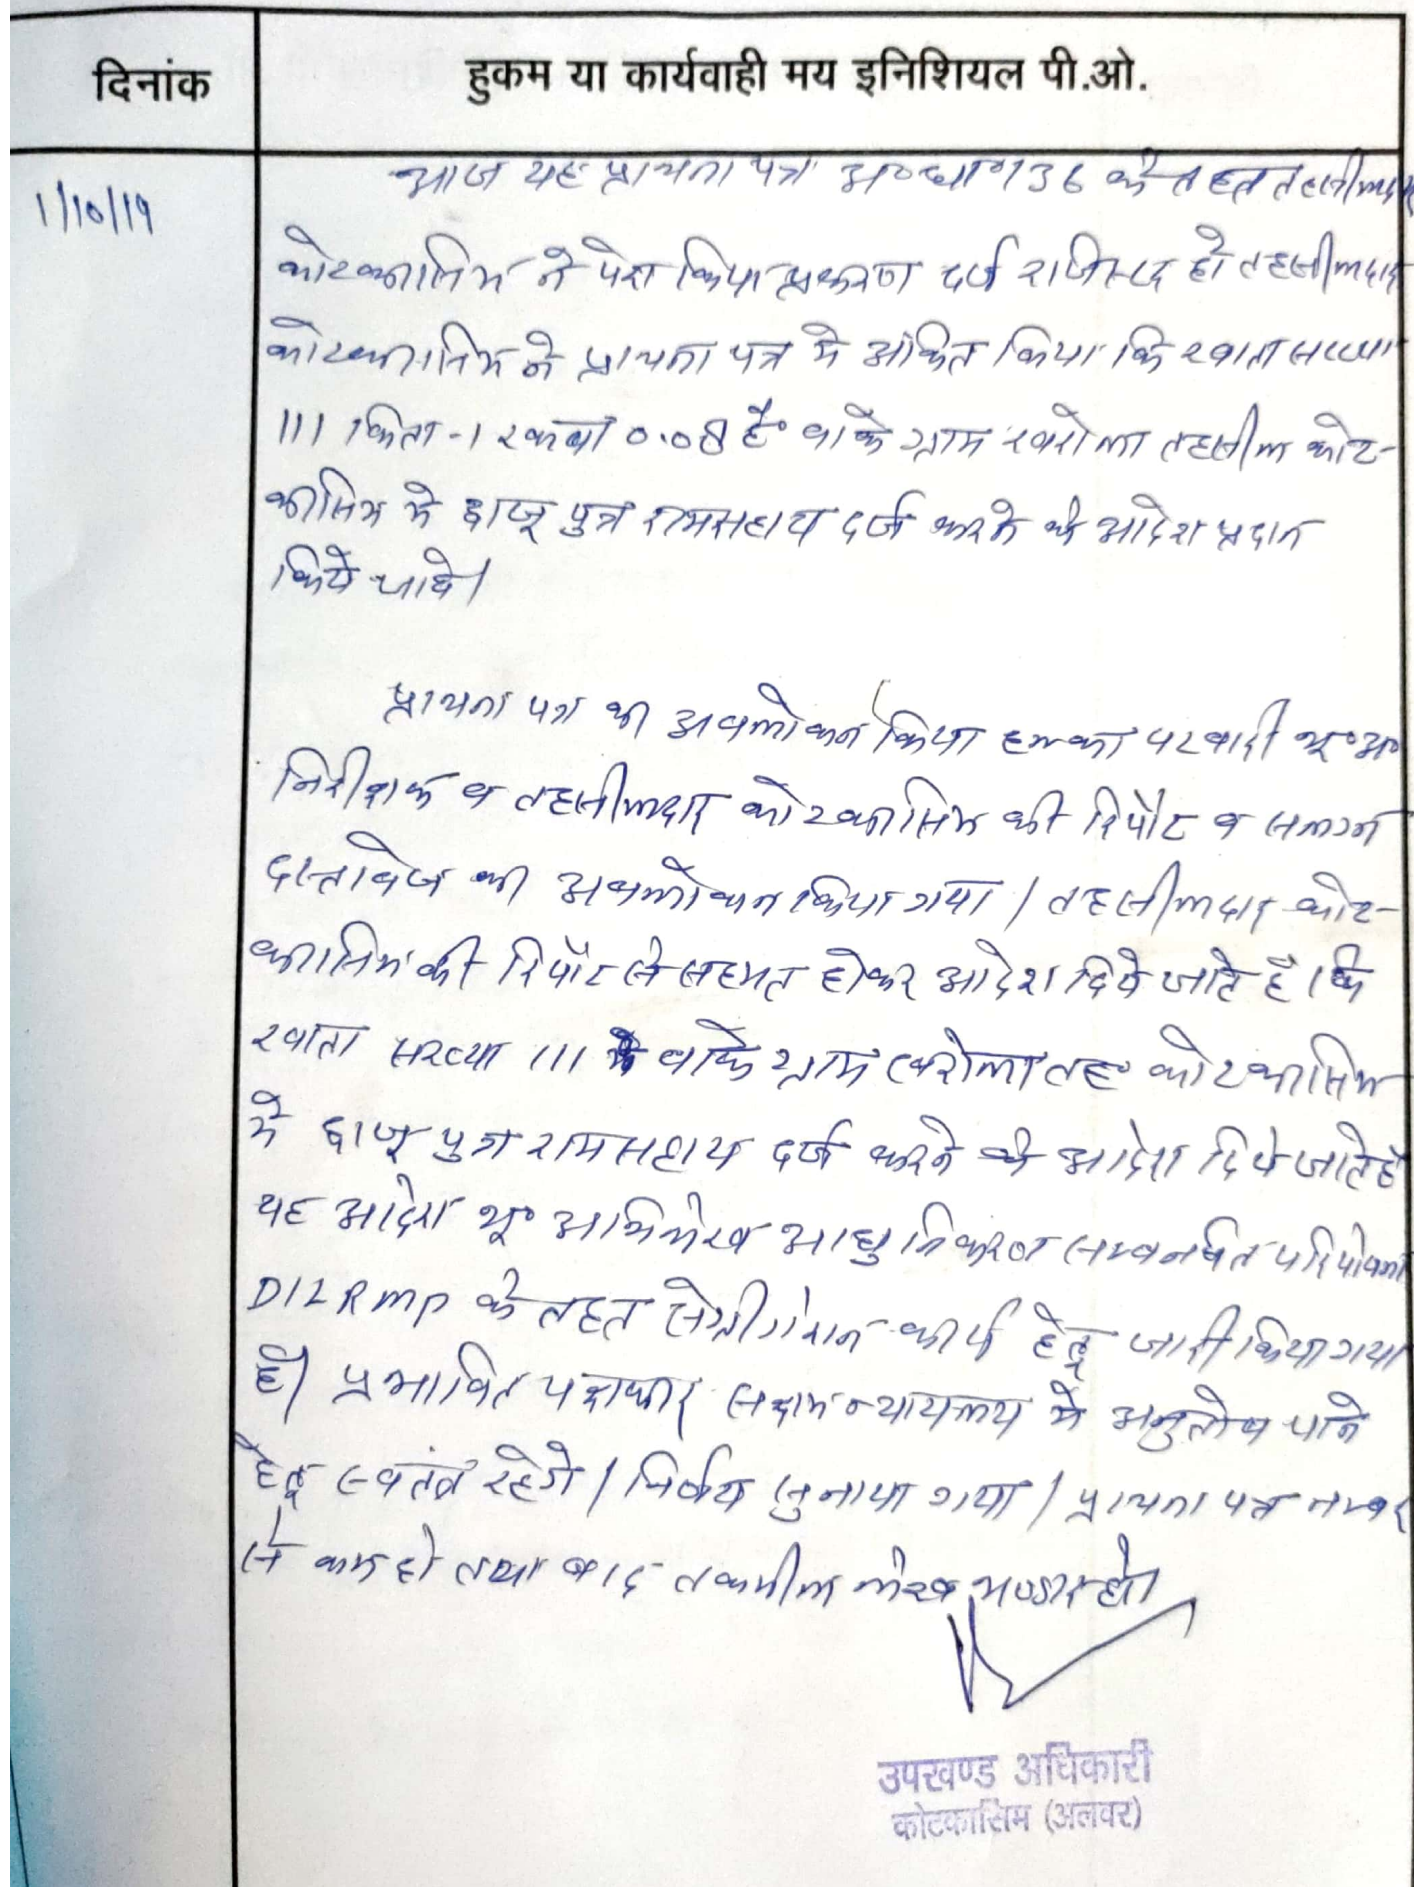 दिनांक
हुकम या कार्यवाही मय इनिशियल पी.ओ.
1/10/19
आज यह प्रार्थना पत्र अ० धारा 136 के तहत तहसीलदार
कोटकासिम ने पेश किया प्रकरण दर्ज रजिस्टर हो तहसीलदार
कोटकासिम ने प्रार्थना पत्र मे अंकित किया कि खाता संख्या
111 किता-1 रकबा 0.08 है० वाके ग्राम खरोला तहसील कोट-
कासिम मे छाजू पुत्र रामसहाय दर्ज करने के आदेश प्रदान
किये जावे।
प्रार्थना पत्र का अवलोकन किया हल्का पटवारी भू०अ०
निरीक्षक व तहसीलदार कोटकासिम की रिपोर्ट व संलग्न
दस्तावेज का अवलोकन किया गया। तहसीलदार कोट-
कासिम की रिपोर्ट से सहमत होकर आदेश दिये जाते है कि
खाता संख्या 111 वाके ग्राम खरोला तह० कोटकासिम
मे छाजू पुत्र रामसहाय दर्ज करने के आदेश दिये जाते है
यह आदेश भू० अभिलेख आधुनिकरण सम्बन्धित परियोजना
DILRmp के तहत सेग्रीगेशन कार्य हेतू जारी किया गया
है। प्रभावित पक्षकार सक्षम न्यायालय मे अनुतोष पाने
हेतू स्वतंत्र रहेगे। निर्णय सुनाया गया। प्रार्थना पत्र नम्बर
से कम हो तथा बाद तकमील लेख भण्डार हो।
उपखण्ड अधिकारी
कोटकासिम (अलवर)